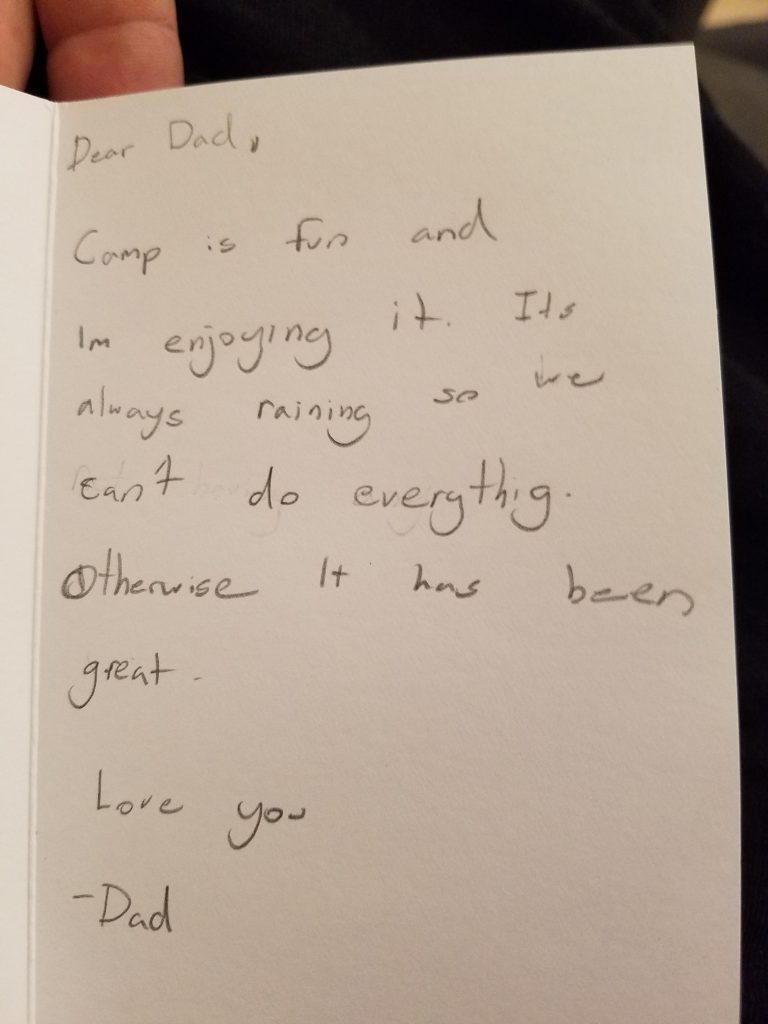 Dear Dad,
Camp is fun and
Im enjoying it. Its
always raining so we
can't do everythig.
Otherwise It has been
great.
Love you
-Dad